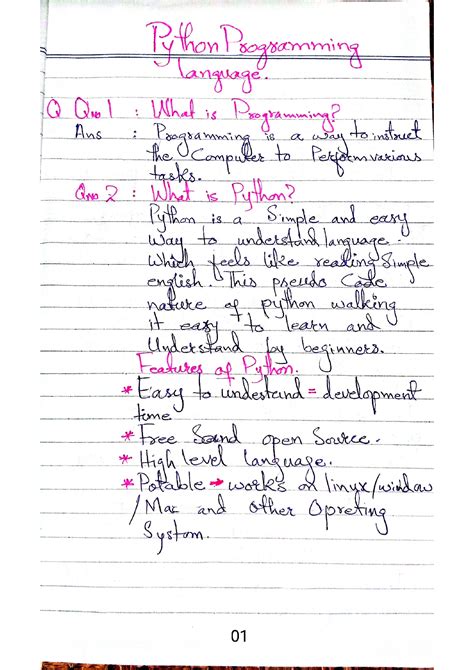 Python Programming
language.
Q Qno 1 : What is Programming?
Ans : Programming is a way to instruct
the Computer to Perform various
tasks.
Qno 2 : What is Python?
Python is a Simple and easy
Way to understand language.
Which feels like reading Simple
english. This pseudo Code
nature of python walking
it easy to learn and
Understand by beginners.
Features of Python.
* Easy to undestand = development
time
* Free Sound open Source.
* High level language.
* Potable → works on linyx/window
/Mac and other Opreting
System.
01